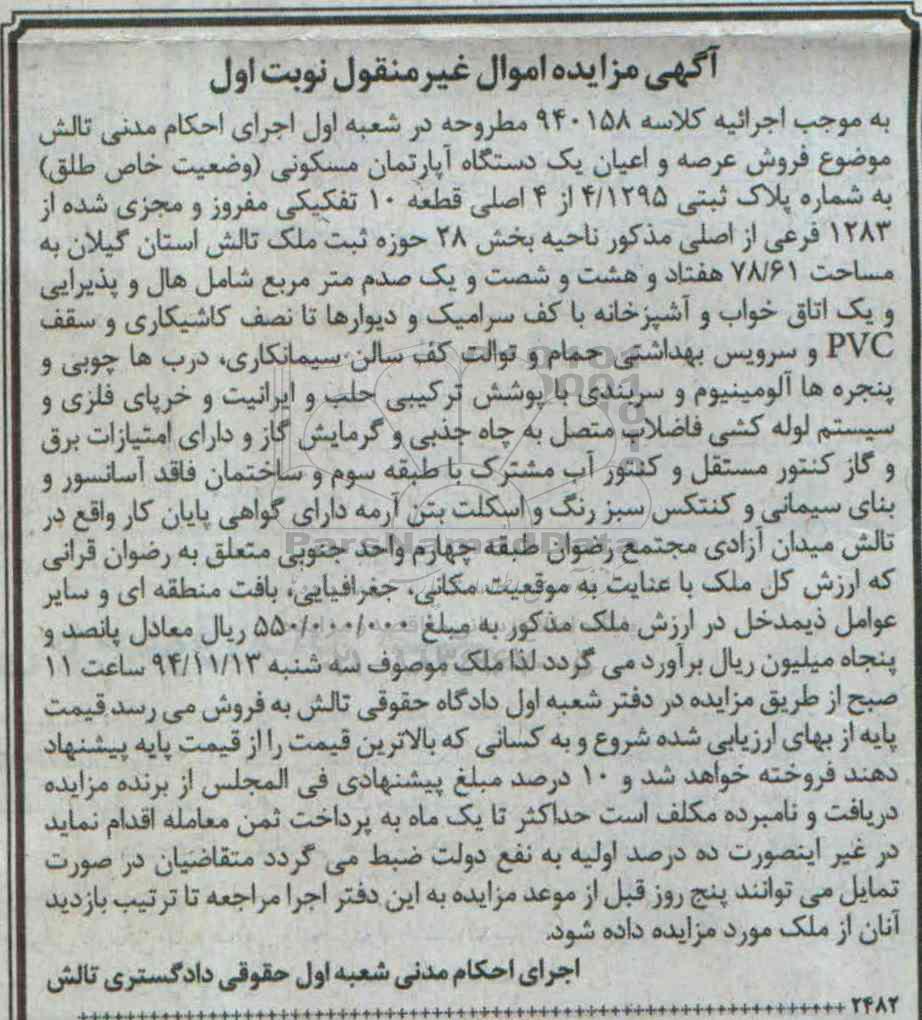 آگهی مزایده اموال غیر منقول نوبت اول
به موجب اجرائیه کلاسه ۹۴۰۱۵۸ مطروحه در شعبه اول اجرای احکام مدنی تالش
موضوع فروش عرصه و اعیان یک دستگاه آپارتمان مسکونی (وضعیت خاص طلق)
به شماره پلاک ثبتی ۴/۱۲۹۵ از ۴ اصلی قطعه ۱۰ تفکیکی مفروز و مجزی شده از
۱۲۸۳ فرعی از اصلی مذکور ناحیه بخش ۲۸ حوزه ثبت ملک تالش استان گیلان به
مساحت ۷۸/۶۱ هفتاد و هشت و شصت و یک صدم متر مربع شامل هال و پذیرایی
و یک اتاق خواب و آشپزخانه با کف سرامیک و دیوارها تا نصف کاشیکاری و سقف
PVC و سرویس بهداشتی حمام و توالت کف سالن سیمانکاری، درب ها چوبی و
پنجره ها آلومینیوم و سربندی با پوشش ترکیبی حلب و ایرانیت و خرپای فلزی و
سیستم لوله کشی فاضلاب متصل به چاه جذبی و گرمایش گاز و دارای امتیازات برق
و گاز کنتور مستقل و کنتور آب مشترک با طبقه سوم و ساختمان فاقد آسانسور و
بنای سیمانی و کنتکس سبز رنگ و اسکلت بتن آرمه دارای گواهی پایان کار واقع در
ParsNamadData
تالش میدان آزادی مجتمع رضوان طبقه چهارم واحد جنوبی متعلق به رضوان قرانی
که ارزش کل ملک با عنایت به موقعیت مکانی، جغرافیایی، بافت منطقه ای و سایر
عوامل ذیمدخل در ارزش ملک مذکور به مبلغ ۵۵۰/۰۰۰/۰۰۰ ریال معادل پانصد و
پنجاه میلیون ریال برآورد می گردد لذا ملک موصوف سه شنبه ۹۴/۱۱/۱۳ ساعت ۱۱
صبح از طریق مزایده در دفتر شعبه اول دادگاه حقوقی تالش به فروش می رسد قیمت
پایه از بهای ارزیابی شده شروع و به کسانی که بالاترین قیمت را از قیمت پایه پیشنهاد
دهند فروخته خواهد شد و ۱۰ درصد مبلغ پیشنهادی فی المجلس از برنده مزایده
دریافت و نامبرده مکلف است حداکثر تا یک ماه به پرداخت ثمن معامله اقدام نماید
در غیر اینصورت ده درصد اولیه به نفع دولت ضبط می گردد متقاضیان در صورت
تمایل می توانند پنج روز قبل از موعد مزایده به این دفتر اجرا مراجعه تا ترتیب بازدید
آنان از ملک مورد مزایده داده شود.
اجرای احکام مدنی شعبه اول حقوقی دادگستری تالش
۲۴۸۲